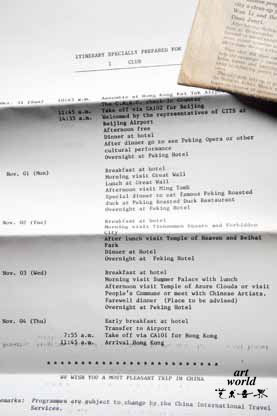 a city clean-up
Won Il and
Daas Jurri.
ITINERARY SPECIALLY PREPARED FOR
1 CLUB
31 (Sun) 10:45 a.m. Assemble at Hong Kong Kai Tak Airport
The C.A.A.C. check-in counter
11:45 a.m. Take off via CA102 for Beijing
14:35 a.m. Welcomed by the representatives of CITS at
Beijing Airport
Afternoon free
Dinner at hotel
After dinner go to see Peking Opera or other
cultural performance
Overnight at Peking Hotel
Nov. 01 (Mon) Breakfast at hotel
Morning visit Great Wall
Lunch at Great Wall
Afternoon visit Ming Tomb
Special dinner to eat famous Peking Roasted
duck at Peking Roasted Duck Restaurant
Overnight at Peking Hotel
Nov. 02 (Tue) Breakfast at hotel
Morning visit Tienanmen Square and Forbidden
City
After lunch visit Temple of Heaven and Beihai
Park
Dinner at Hotel
Overnight at Peking Hotel
Nov. 03 (Wed) Breakfast at hotel
Morning visit Summer Palace with lunch
Afternoon visit Temple of Azure Clouds or visit
People's Commune or meet with Chinese Artists.
Farewell dinner (Place to be advised)
Overnight at Peking Hotel
Nov. 04 (Thu) Early breakfast at hotel
Transfer to Airport
7:55 a.m. Take off via CA101 for Hong Kong
11:45 a.m. Arrival Hong Kong
* * * * * * * * * * * * * * * * * * * * * * * *
WE WISH YOU A MOST PLEASANT TRIP IN CHINA
art
world
emarks: Programmes are subject to change by the China International Travel
Services.